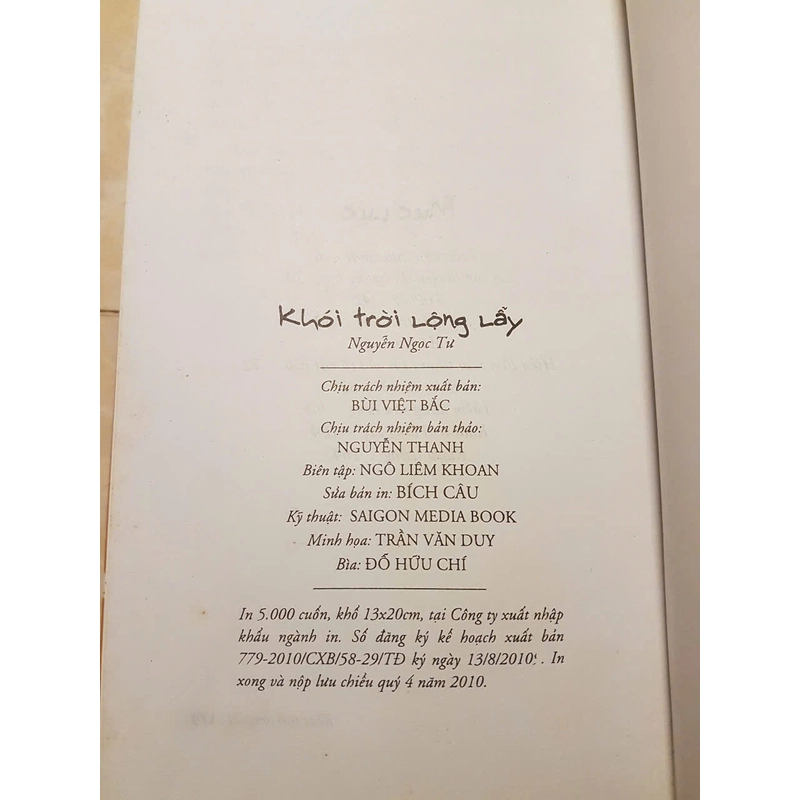 Khói trời lộng lẫy
Nguyễn Ngọc Tư
Chịu trách nhiệm xuất bản:
BÙI VIỆT BẮC
Chịu trách nhiệm bản thảo:
NGUYỄN THANH
Biên tập: NGÔ LIÊM KHOAN
Sửa bản in: BÍCH CÂU
Kỹ thuật: SAIGON MEDIA BOOK
Minh họa: TRẦN VĂN DUY
Bìa: ĐỖ HỮU CHÍ
In 5.000 cuốn, khổ 13x20cm, tại Công ty xuất nhập
khẩu ngành in. Số đăng ký kế hoạch xuất bản
779-2010/CXB/58-29/TĐ ký ngày 13/8/2010. In
xong và nộp lưu chiểu quý 4 năm 2010.